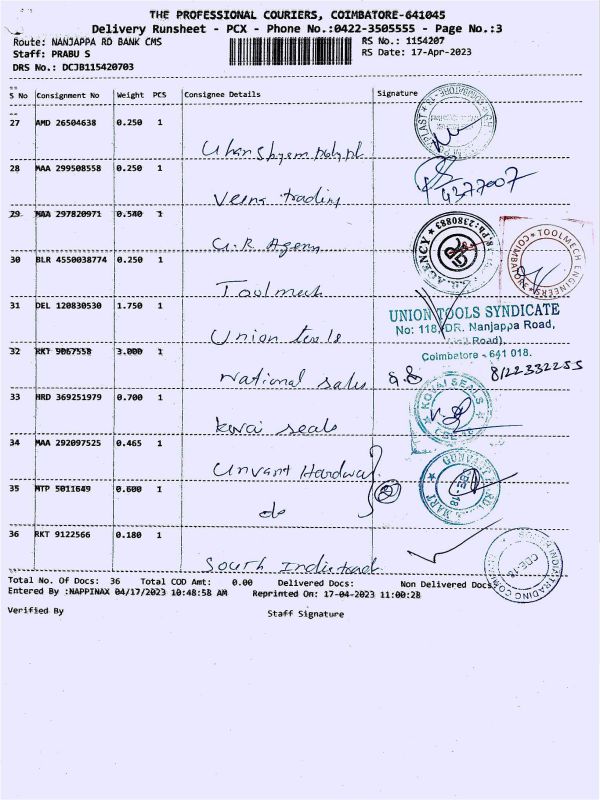 THE PROFESSIONAL COURIERS, COIMBATORE-641045
Delivery Runsheet - PCX - Phone No.:0422-3505555 - Page No.:3
Route: NANJAPPA RD BANK CMS RS No.: 1154207
Staff: PRABU S RS Date: 17-Apr-2023
DRS No.: DCJB115420703
S No Consignment No Weight PCS Consignee Details Signature
27 AMD 26504638 0.250 1
28 MAA 299508558 0.250 1
Veena trading
4377007
29 MAA 297820971 0.540 1
G.R Agency
AGENCY Ph:2380883
30 BLR 4550038774 0.250 1
Toolmech
TOOLMECH ENGINEERS COIMBATORE
31 DEL 120830530 1.750 1
Union tools
UNION TOOLS SYNDICATE
No: 118, DR. Nanjappa Road,
Road),
Coimbatore - 641 018.
32 RKT 9067558 3.000 1
National sales
8122332255
33 HRD 369251979 0.700 1
Kovai seals
KOVAI SEALS
34 MAA 292097525 0.465 1
Hardwar
35 MTP 5011649 0.600 1
do
36 RKT 9122566 0.180 1
South Indiatrad
Total No. Of Docs: 36 Total COD Amt: 0.00 Delivered Docs: Non Delivered Docs:
Entered By :NAPPINAX 04/17/2023 10:48:58 AM Reprinted On: 17-04-2023 11:00:28
Verified By Staff Signature